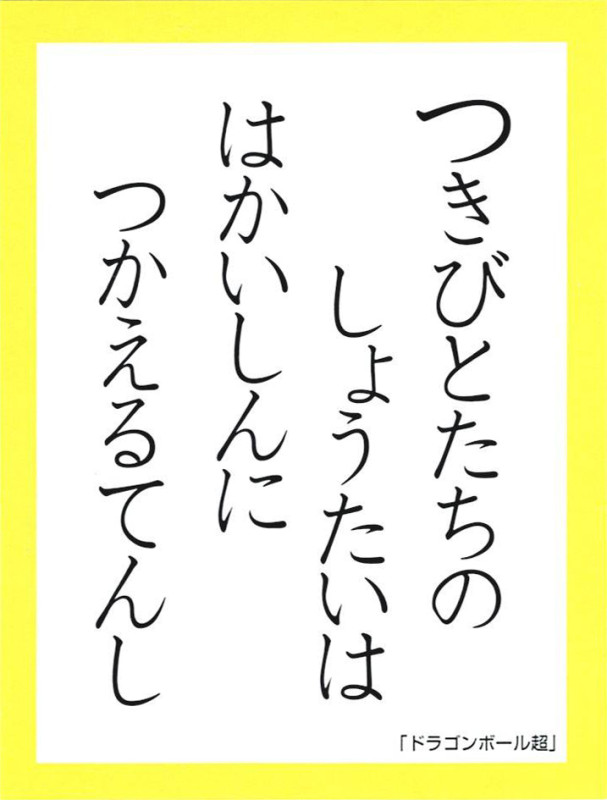 つきびとたちの
しょうたいは
はかいしんに
つかえるてんし
「ドラゴンボール超」